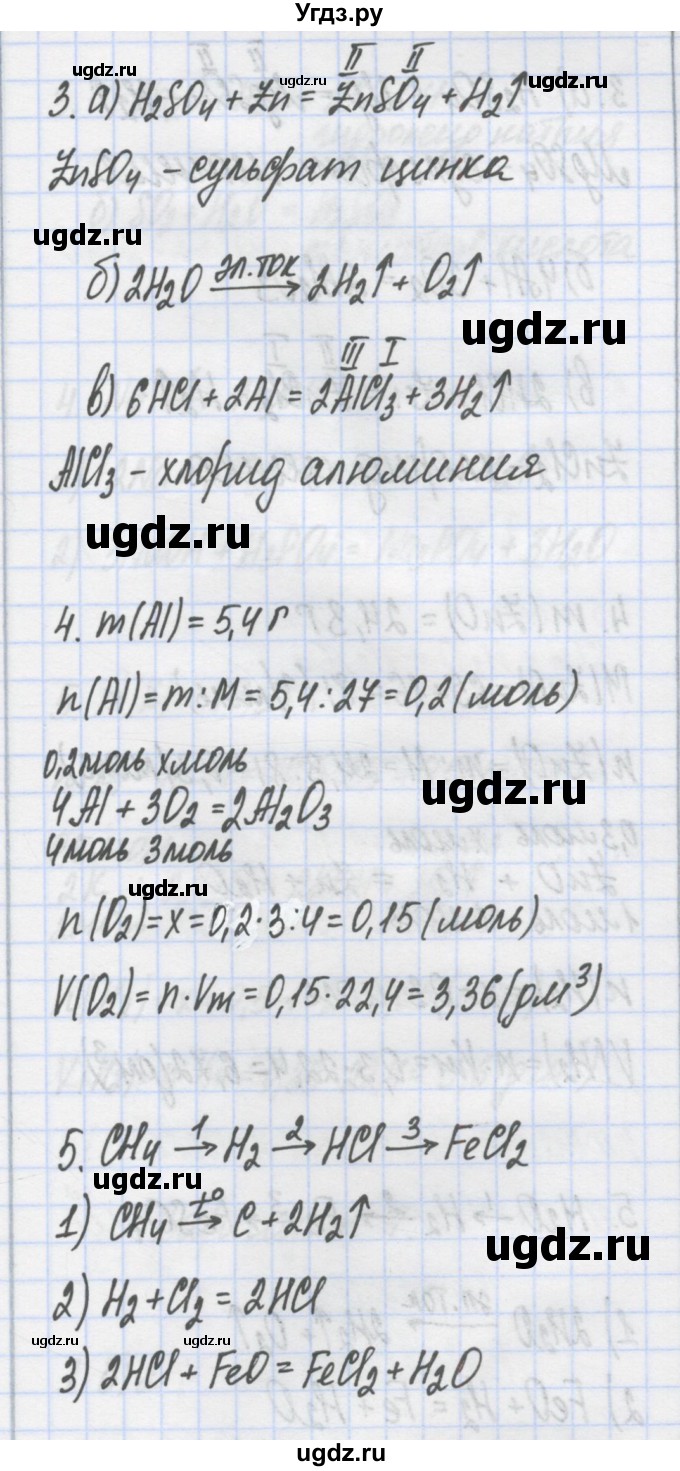 Угдз.ру
ugdz.ru ugdz.ru ugdz.ru ugdz.ru
II II
3. а) H₂SO₄ + Zn = ZnSO₄ + H₂↑
ZnSO₄ – сульфат цинка
ugdz.ru
б) 2H₂O эл.ток → 2H₂↑ + O₂↑
ugdz.ru
III I
в) 6HCl + 2Al = 2AlCl₃ + 3H₂↑
AlCl₃ – хлорид алюминия
ugdz.ru
4. m(Al) = 5,4 г
n(Al) = m : M = 5,4 : 27 = 0,2 (моль)
0,2 моль x моль
4Al + 3O₂ = 2Al₂O₃
ugdz.ru
4 моль 3 моль
n(O₂) = x = 0,2 · 3 : 4 = 0,15 (моль)
V(O₂) = n · Vm = 0,15 · 22,4 = 3,36 (дм³)
5. CH₄ 1→ H₂ 2→ HCl 3→ FeCl₂
ugdz.ru
1) CH₄ t°→ C + 2H₂↑
ugdz.ru
2) H₂ + Cl₂ = 2HCl
ugdz.ru ugdz.ru
3) 2HCl + FeO = FeCl₂ + H₂O
ugdz.ru